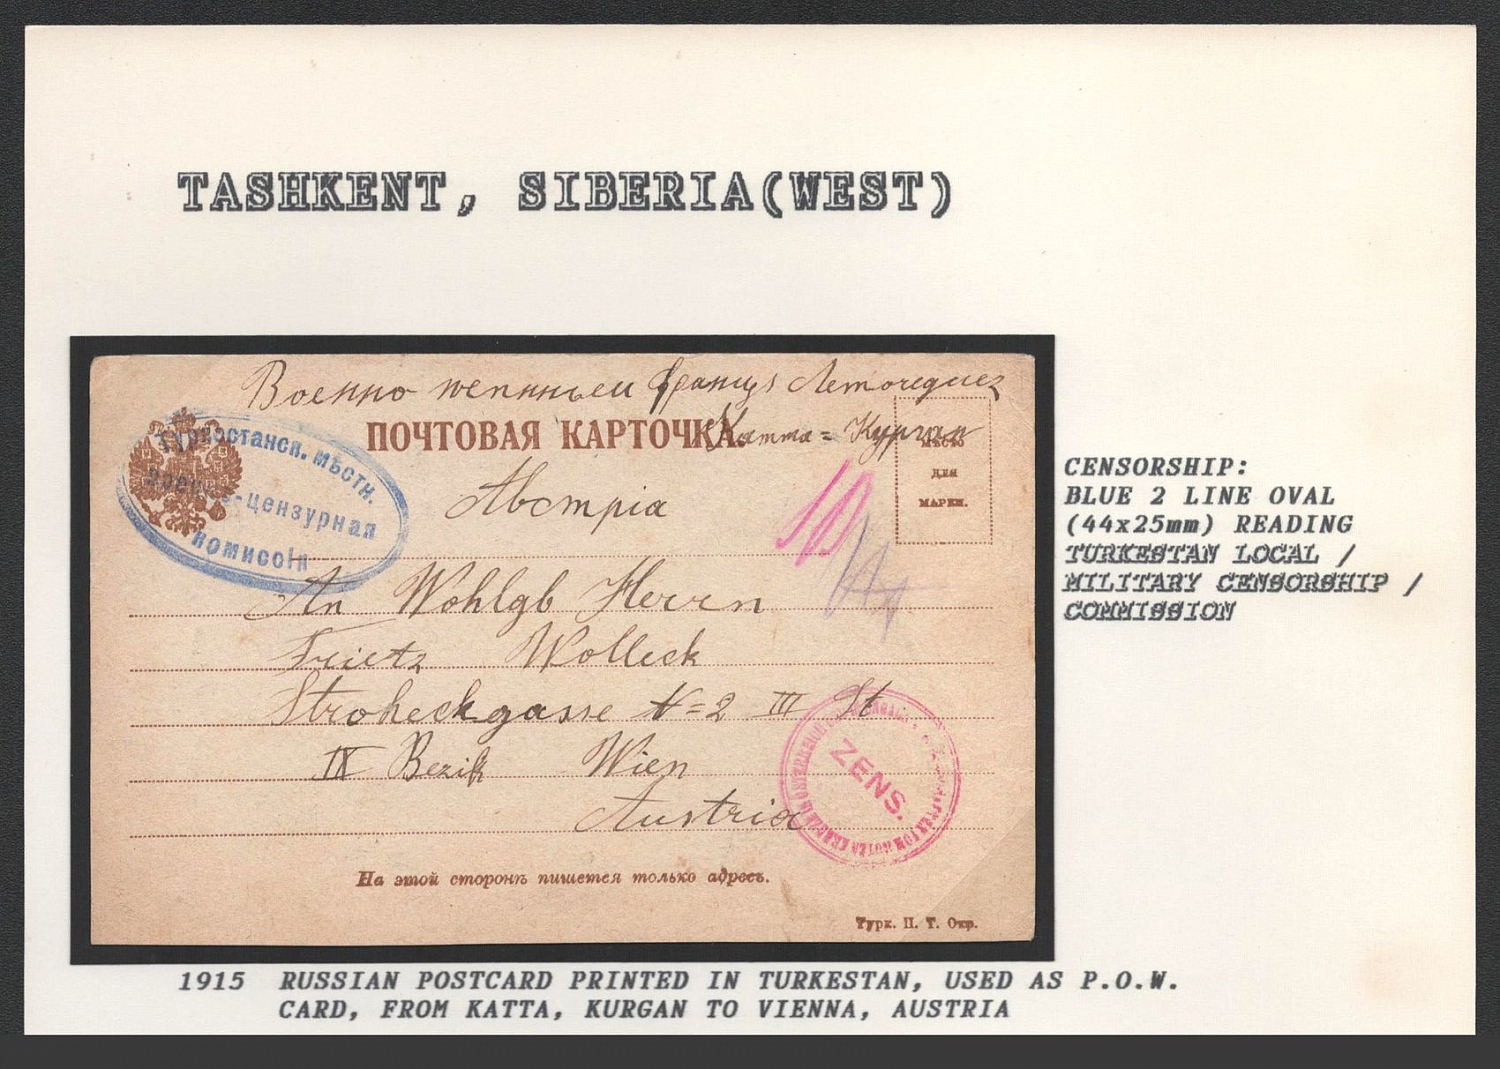 TASHKENT, SIBERIA(WEST)
Военно пепнньеи Францъ
ПОЧТОВАЯ КАРТОЧКА.
Катта = Курган
МѢСТО
ДЛЯ
МАРКИ.
Австрія
Туркестанск. мѣстн.
Военно-цензурная
комиссія
An Wohlgb Herrn
Frietz Wolleck
Stroheckgasse N=2 III St
IX Bezik Wien
Austria
ZENS.
На этой сторонѣ пишется только адресъ.
Турк. П. Т. Окр.
CENSORSHIP:
BLUE 2 LINE OVAL
(44x25mm) READING
TURKESTAN LOCAL /
MILITARY CENSORSHIP /
COMMISSION
1915 RUSSIAN POSTCARD PRINTED IN TURKESTAN, USED AS P.O.W.
CARD, FROM KATTA, KURGAN TO VIENNA, AUSTRIA